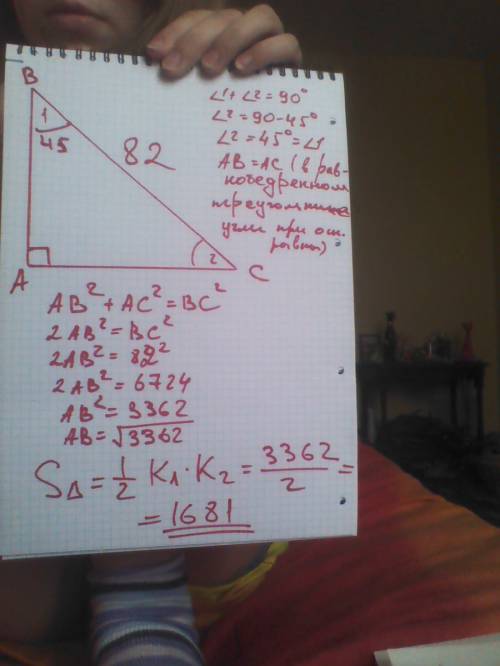 B
1
45
82
2
A
C
∠1 + ∠2 = 90°
∠2 = 90 - 45°
∠2 = 45° = ∠1
AB = AC (в рав-
нобедренном
треугольнике
углы при осн.
равны)
AB² + AC² = BC²
2AB² = BC²
2AB² = 82²
2AB² = 6724
AB² = 3362
AB = √3362
S∆ = 1/2 K₁ · K₂ = 3362/2 =
= 1681